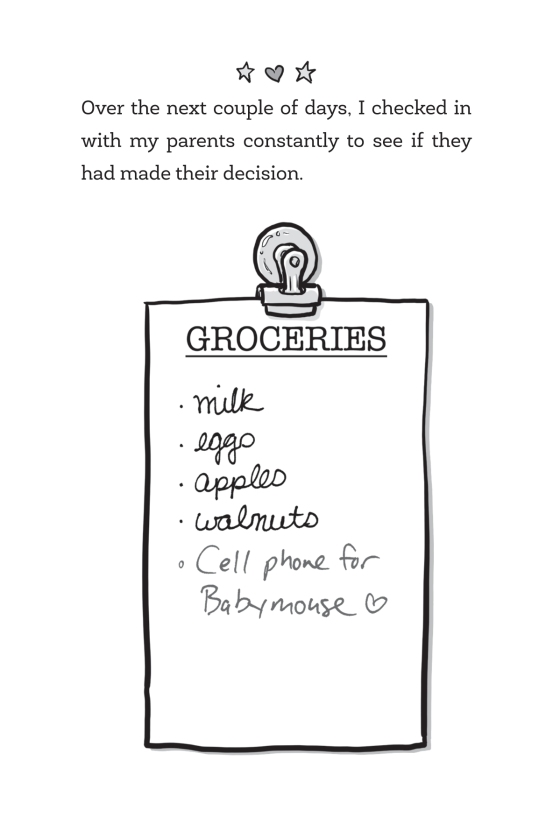 Over the next couple of days, I checked in
with my parents constantly to see if they
had made their decision.
GROCERIES
· milk
· eggs
· apples
· walnuts
◦ Cell phone for
Babymouse ♡